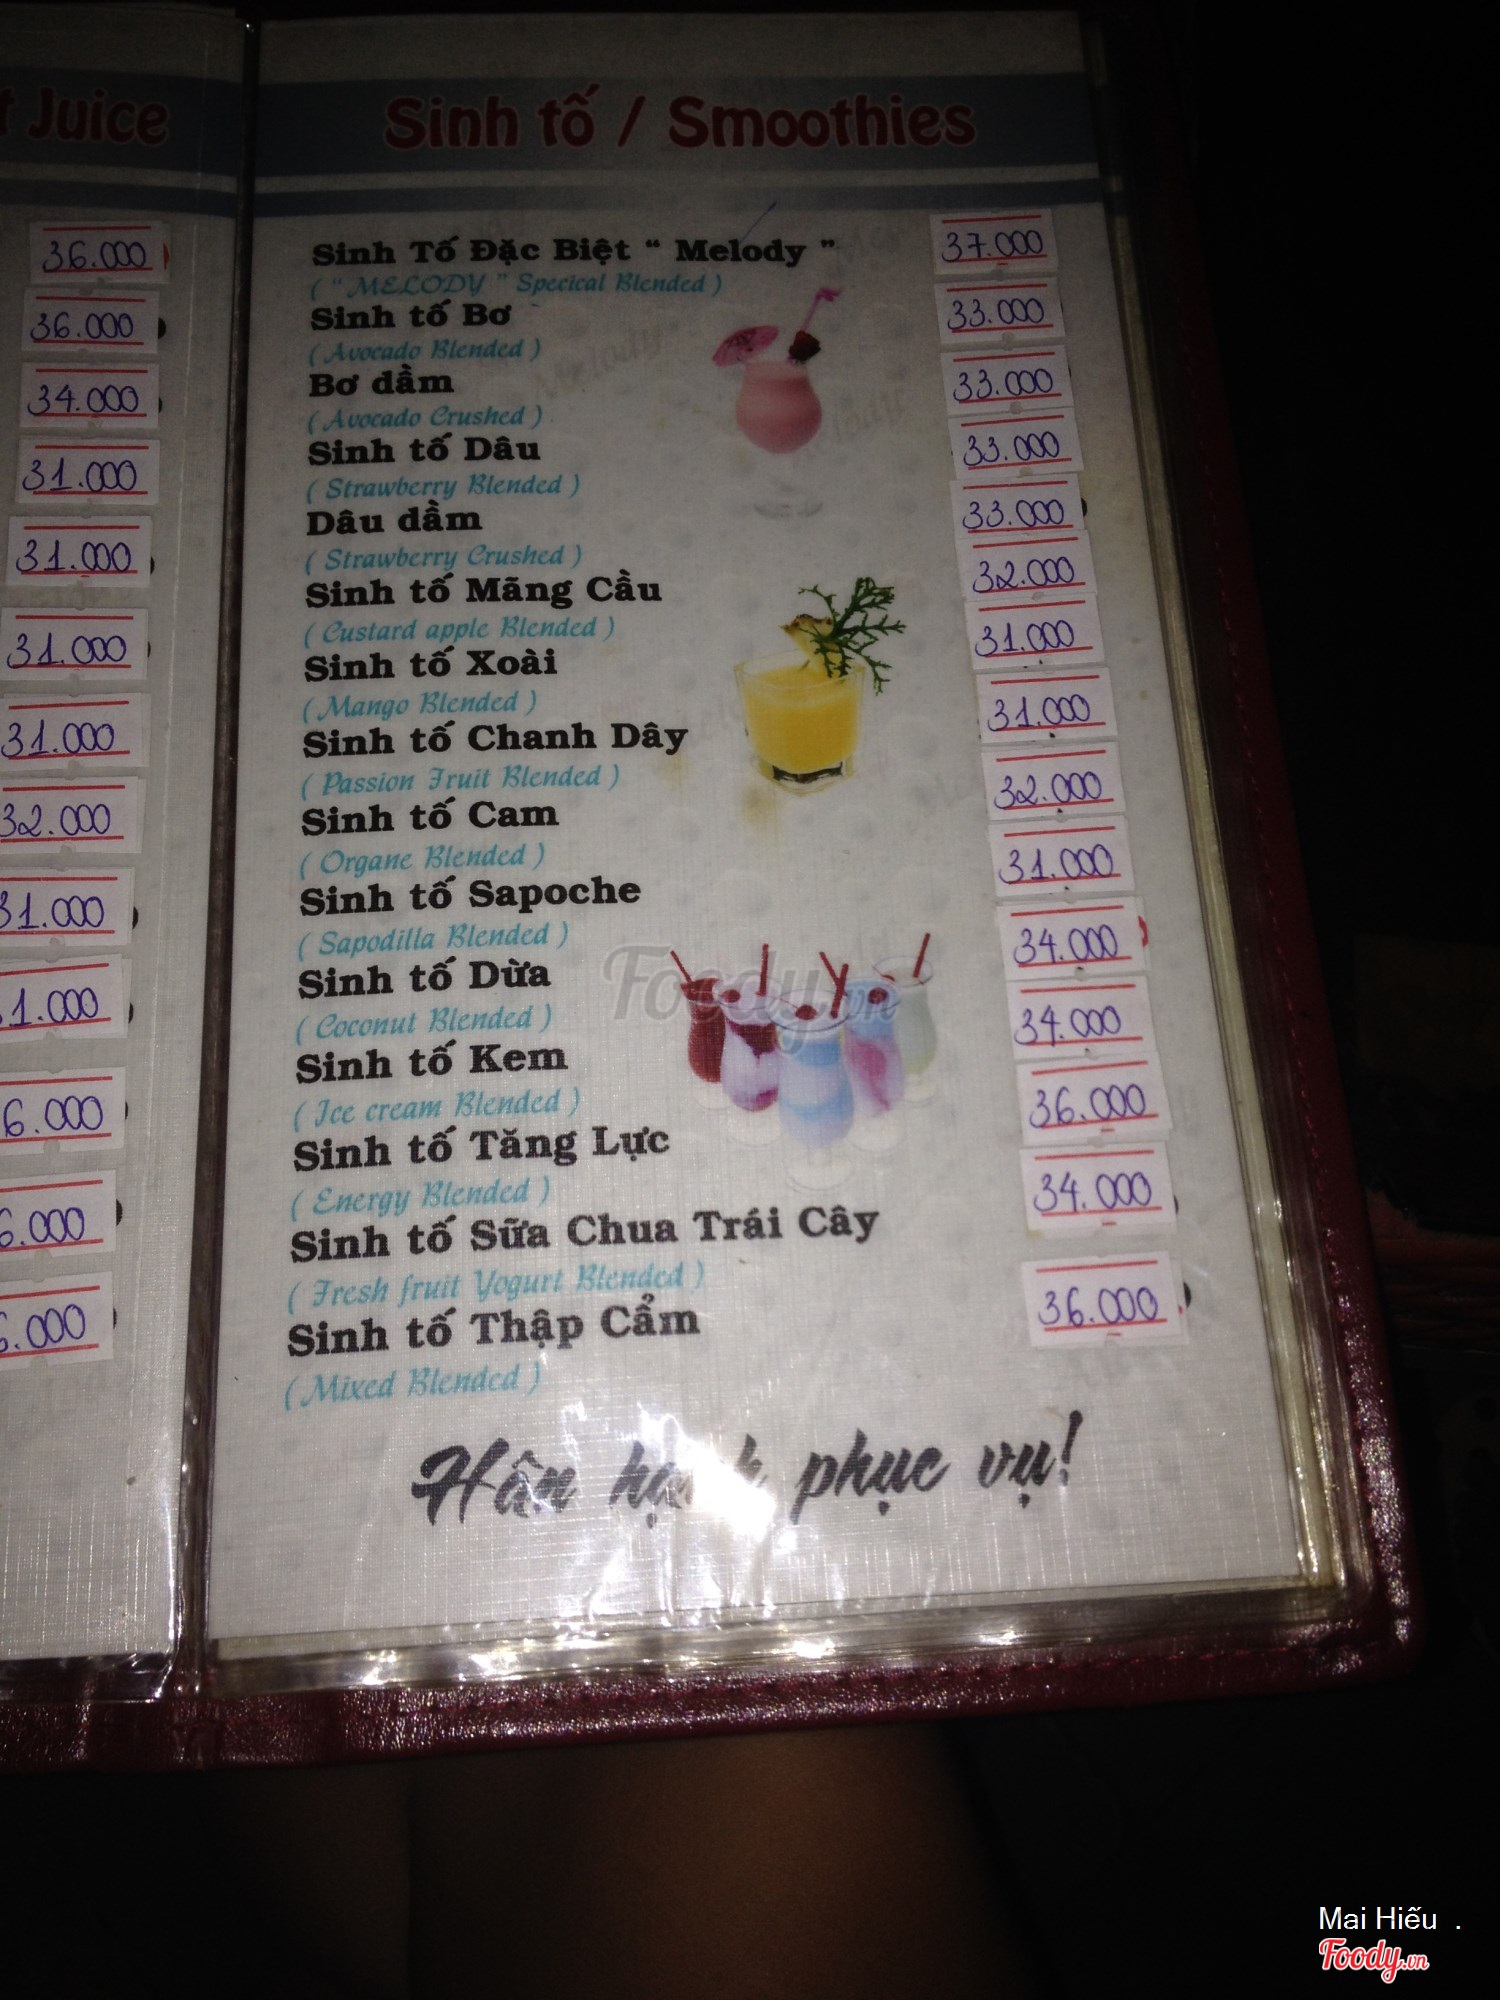 Juice
36.000
36.000
34.000
31.000
31.000
31.000
31.000
32.000
31.000
1.000
6.000
6.000
6.000
Sinh tố / Smoothies
Sinh Tố Đặc Biệt “ Melody ” 37.000
( “ MELODY ” Specical Blended )
Sinh tố Bơ 33.000
( Avocado Blended )
Bơ dầm 33.000
( Avocado Crushed )
Sinh tố Dâu 33.000
( Strawberry Blended )
Dâu dầm 33.000
( Strawberry Crushed )
Sinh tố Mãng Cầu 32.000
( Custard apple Blended )
Sinh tố Xoài 31.000
( Mango Blended )
Sinh tố Chanh Dây 31.000
( Passion Fruit Blended )
Sinh tố Cam 32.000
( Organe Blended )
Sinh tố Sapoche 31.000
( Sapodilla Blended )
Sinh tố Dừa 34.000
( Coconut Blended )
Sinh tố Kem 34.000
( Ice cream Blended )
Sinh tố Tăng Lực 36.000
( Energy Blended )
Sinh tố Sữa Chua Trái Cây 34.000
( Fresh fruit Yogurt Blended )
Sinh tố Thập Cẩm 36.000
( Mixed Blended )
Hân hạnh phục vụ!
Foody.vn
Mai Hiếu .
Foody.vn